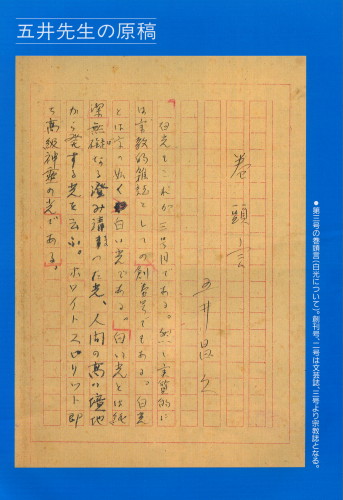 五井先生の原稿
●第三号の巻頭言(白光について)。創刊号、二号は文芸誌、三号より宗教誌となる。
巻頭言
五井昌久
白光もこれが三号目である。然し実質的に
は宗教的雑誌としての創刊号でもある。白光
とは字の如く白い光である。白い光とは純
潔無礙なる澄み清まった光、人間の高い境地
から発する光を云ふ。ホワイトスピリット即
ち高級神霊の光である。